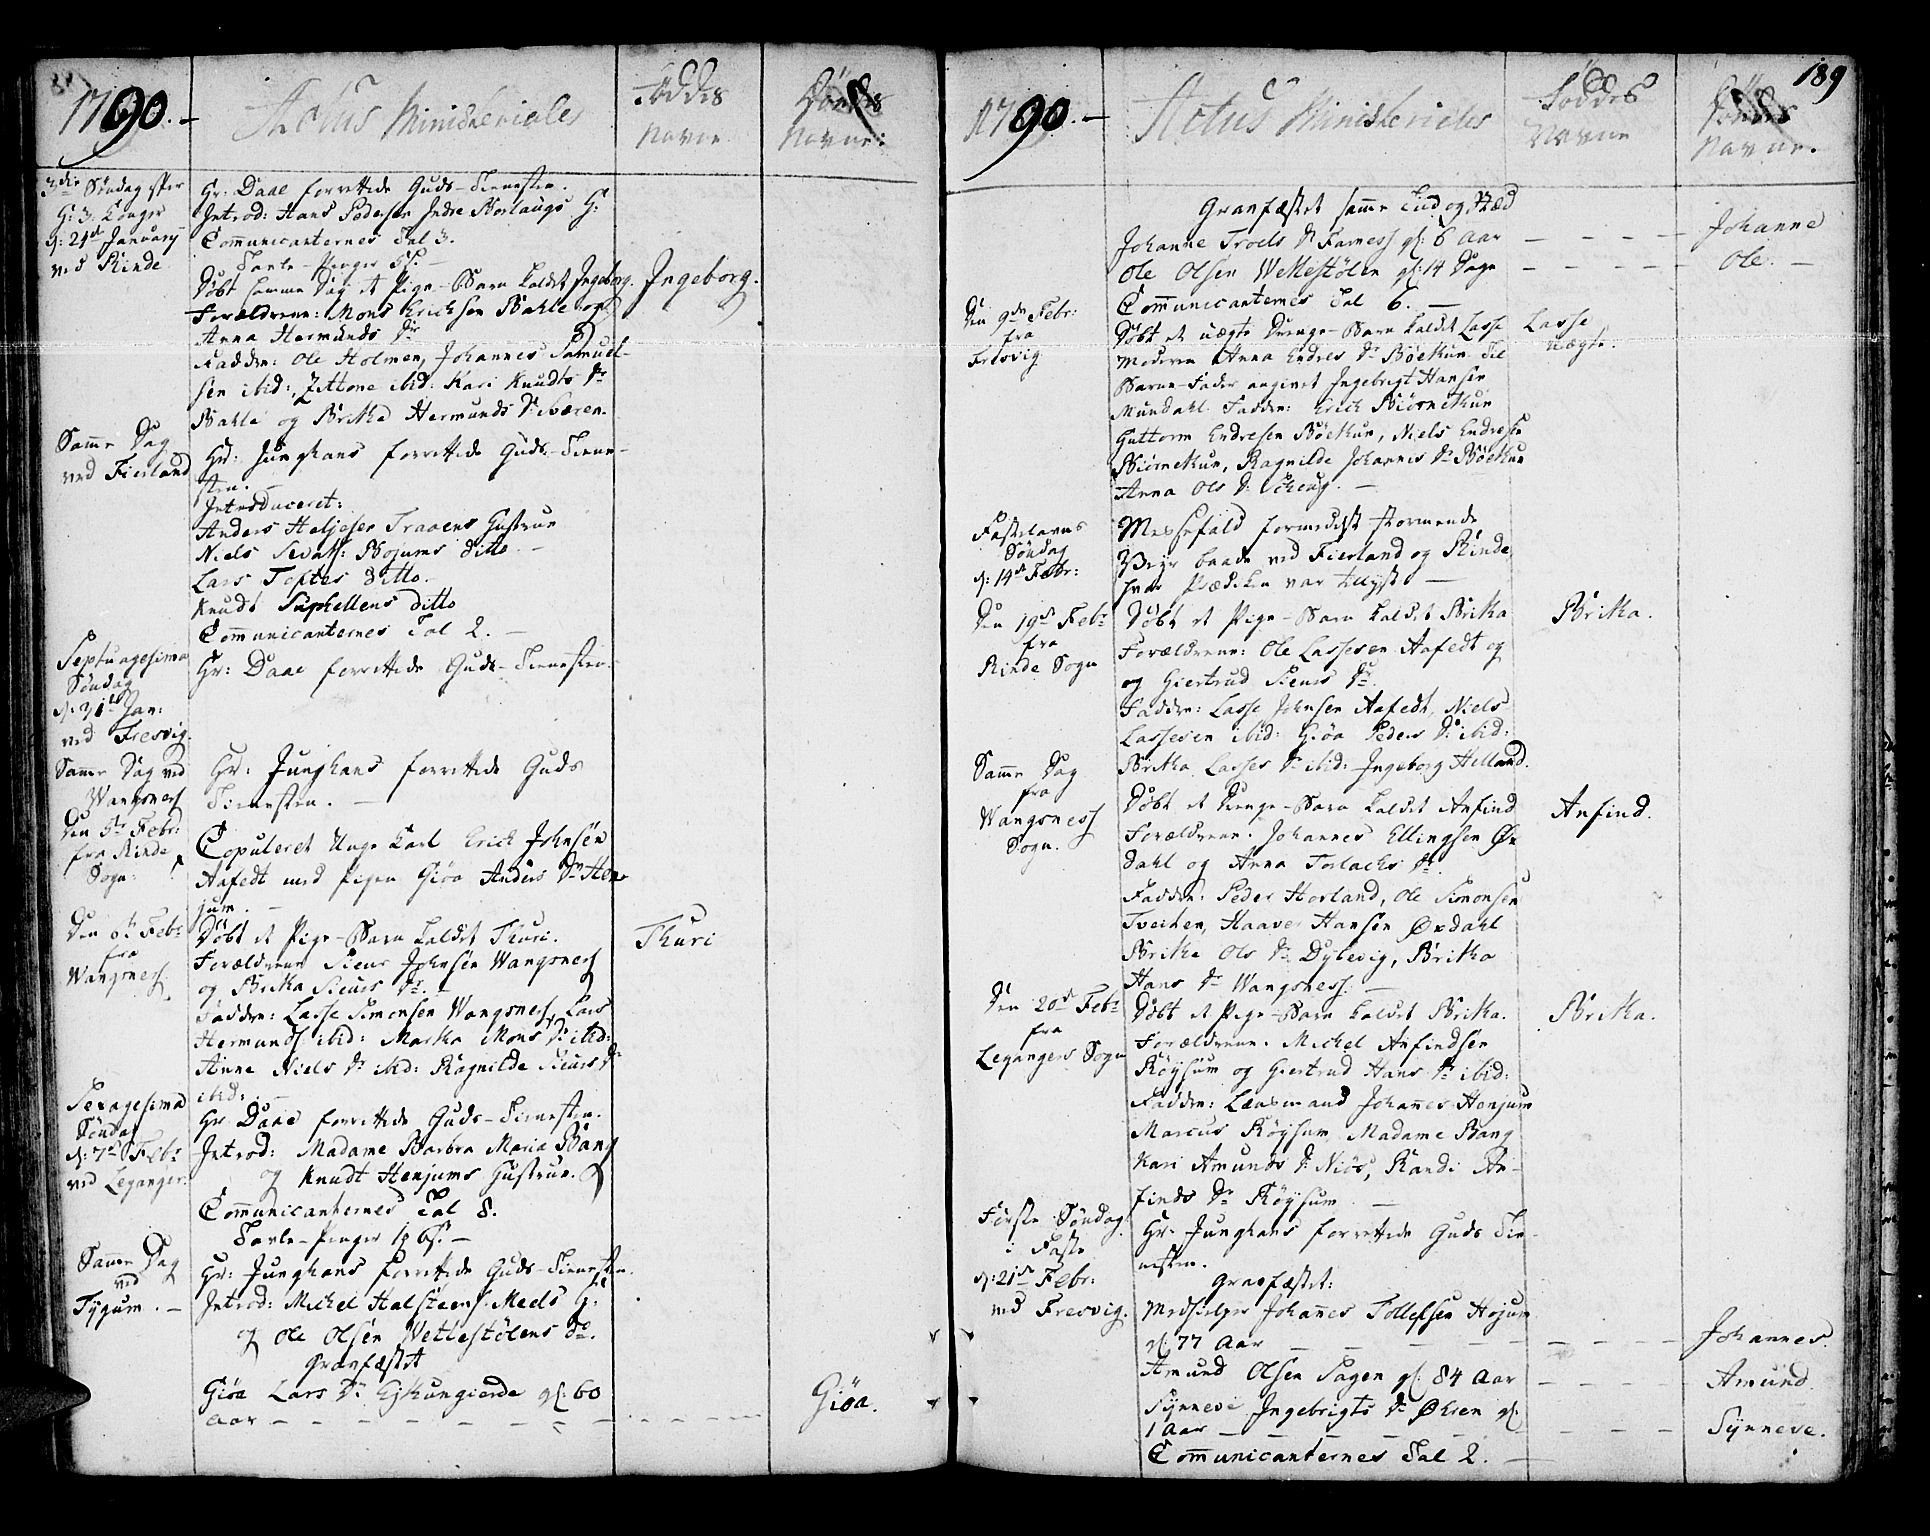 1790.
Actus Ministeriales
Föddes
Navne
Dödes
Navne:
3die Söndag efter
H: 3. Konger
d: 24de January
ved Rinde
Hr: Daae forrettede Guds-Tienesten.
Introd: Hans Pedersen Indre Norlaugs H:
Communicanternes Tal 3.
Tavle-Penger
Döbt samme Dag et Pige-Barn kaldet Ingeborg.
Ingeborg.
Forældrene: Mons Erichsen Bahle og
Anna Hermunds Dr
Faddre: Ole Holmen, Johannes Samuel-
sen ibid: Zittone ibid: Kari Knudts Dr
Bahle og Britha Hermunds Dr Sværen.
Samme Dag
ved Fierland
Hr: Junghans forrettede Guds-Tiene-
sten.
Introduceret:
Anders Heljesen Traaens Hustrue
Niels Sevats: Bojums ditto
Lars Toftes ditto.
Knudt Suphellens ditto
Communicanternes Tal 2.
Septuagesima
Söndag
d: 31te Jan:
ved Fresvig.
Hr: Daae forrettede Guds-Tienesten.
Samme Dag ved
Wangsness
Hr: Junghans forrettede Guds
Tienesten.
Den 5te Febr:
fra Rinde
Sogn:
Copuleret Unge Karl Erich Johnsen
Aafedt med Pigen Giöa Anders Dr Hen-
jum.
Den 6te Febr
fra
Wangsness.
Döbt et Pige-Barn kaldet Thuri.
Thuri
Forældrene Sieur Johnsen Wangsness
og Britha Sieurs Dr.
Faddre: Lasse Simonsen Wangsness, Lars
Hermunds: ibid: Martha Mons Dr ibid:
Anne Niels Dr ibid: Ragnilde Sieurs Dr
ibid:
Sexagesima
Söndag
d: 7de Febr
ved Leganger.
Hr Daae forrettede Guds-Tienesten.
Introd: Madame Barbra Maria Bang
og Knudt Henjums Hustrue.
Communicanternes Tal 8.
Tavle-Penger
Samme Dag
ved
Tygum.
Hr: Junghans forrettede Guds-Tienesten.
Introd: Michel Halsteens: Meels H:
og Ole Olsen Vettestölens do.
Gravfæstet
Giöa Lars Dr Ejkungierde gl: 60
Aar
Giöa.
189
1790.
Actus Ministeriales
Föddes
Navne
Dödes
Navne.
Gravfæstet samme Tiid og Stæd
Johanne Troels Dr Farness gl: 6 Aar
Johanne
Ole Olsen Wettestölen gl: 14 Dage
Ole.
Communicanternes Tal 6.
Den 9de Febr:
fra
Fresvig
Döbt et uægte Drenge-Barn kaldet Lasse
Lasse
uægte.
Moderen Anna Endres Dr Böetun. Til
Barne-Fader angivet Ingebrigt Hansen
Mundahl. Faddre: Erich Biörnetun
Guttorm Endresen Böetun, Niels Endresen
Biörnetun, Ragnilde Johannes Dr Böetun
Anna Ols Dr
Fastelavns
Söndag
d: 14de Febr:
Messefald formedelst stormende
Veyr baade ved Fierland og Rinde
hvor Prædiken var tillyst
Den 19de Febr
fra
Rinde Sogn
Döbt et Pige-Barn kaldet Britha
Britha.
Forældrene: Ole Lassesen Aafedt og
og Giertrud Sieurs Dr.
Faddre: Lasse Johnsen Aafedt, Niels
Lassesen ibid: Giöa Peders Dr ibid:
Britha Lasses Dr ibid: Ingeborg Hilland.
Samme Dag
fra
Wangsness
Sogn.
Döbt et Drenge-Barn kaldet Anfind
Anfind.
Forældrene. Johannes Ellingsen Öv-
dahl og Anna Torlachs Dr.
Faddre: Peder Hovland, Ole Simonsen
Tveiten, Haaver Hansen Övdahl
Britha Ols Dr Dylevig, Britha
Hans Dr Wangsness.
Den 20de Febr
fra
Legangers Sogn
Döbt et Pige-Barn kaldet Britha.
Britha.
Forældrene. Michel Anfindsen
Röysum og Giertrud Hans Dr ibid:
Faddre: Lænsmand Johannes Henjum
Marcus Röysum, Madame Bang
Kari Amunds Dr Niös, Randi An-
finds Dr Röysum
Förste Söndag
i Faste
d: 21de Febr:
ved Fresvig.
Hr: Junghans forrettede Guds Tie-
nesten.
Gravfæstet:
Medhielper Johannes Tollefsen Hojum
gl: 77 Aar
Johannes.
Amund Olsen Sagen gl: 84 Aar
Amund.
Synneve Ingebrigts Dr Öhren gl:
1 Aar
Synneve.
Communicanternes Tal 2.